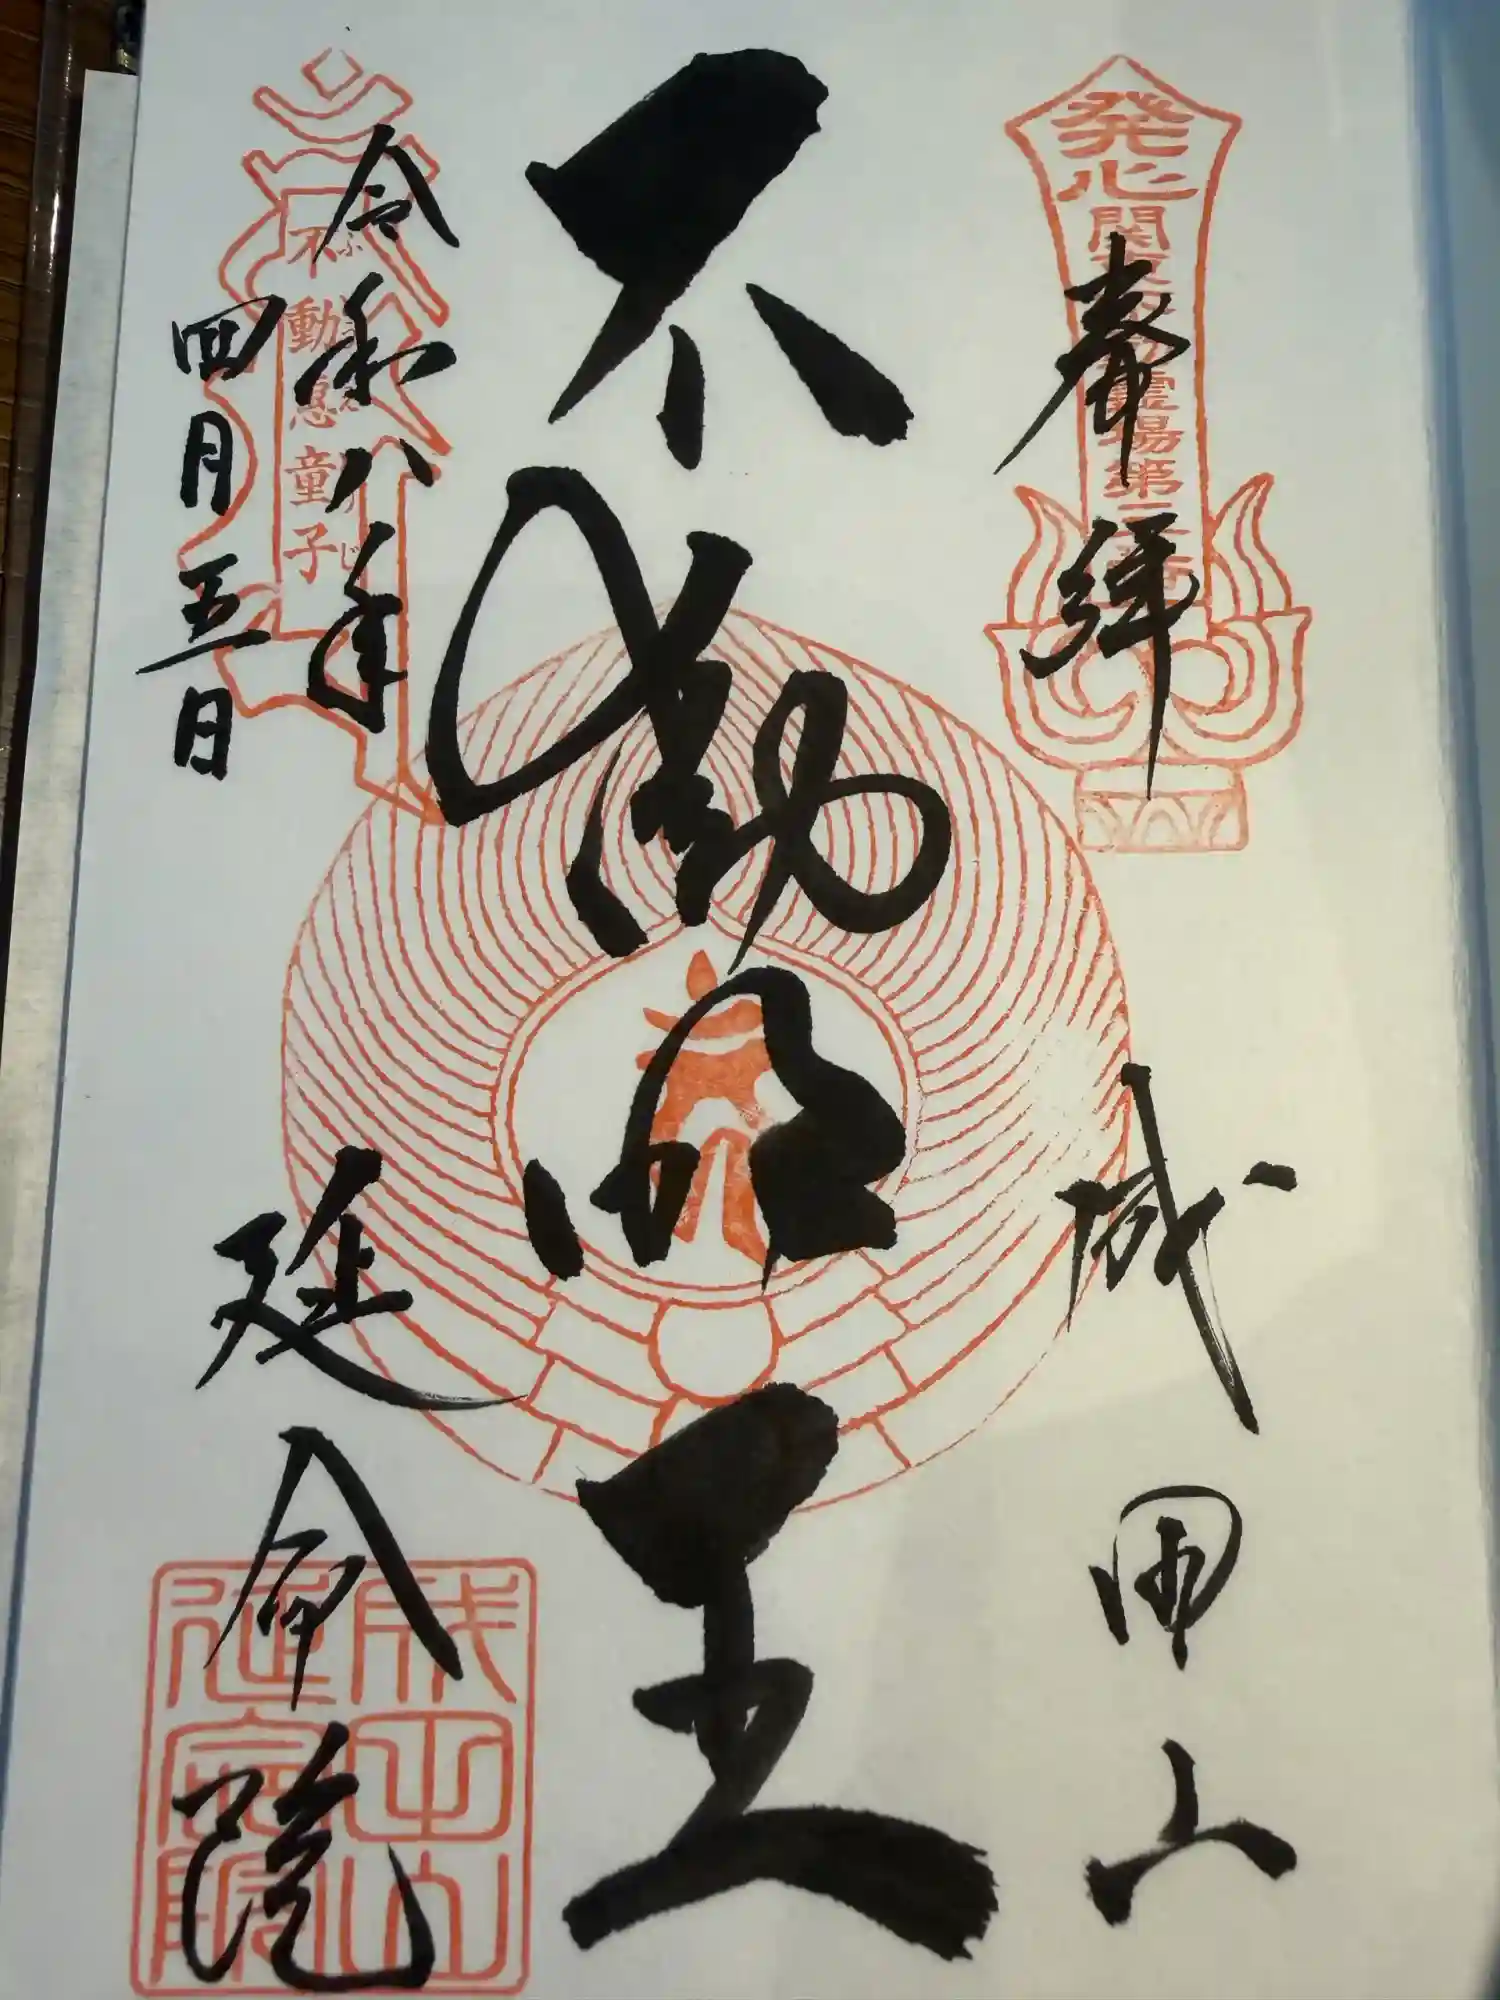 発心 関東三十六不動霊場第三番
奉拝
成田山
不動明王
不動恵童子
令和八年
四月五日
延命院
成田山
延命院